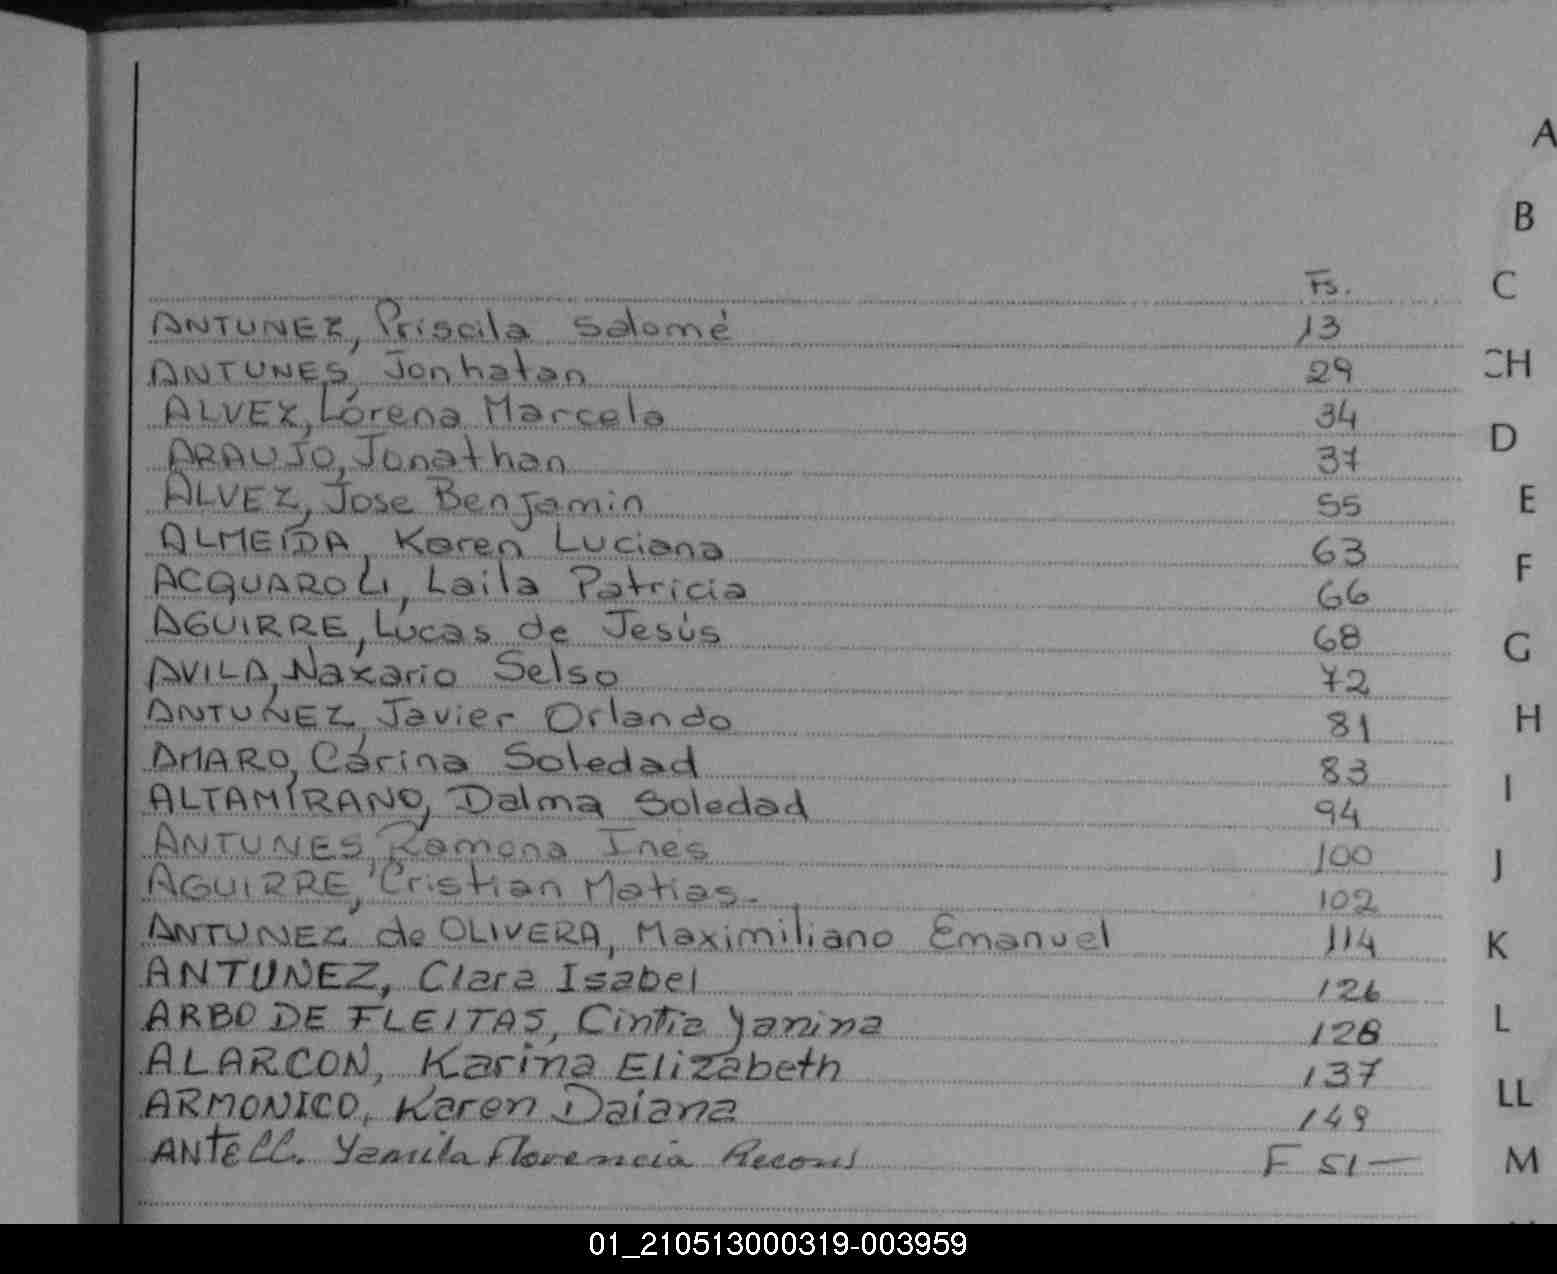 Fs.
ANTUNEZ, Priscila Salomé 13
ANTUNES, Jonhatan 29
ALVEZ, Lorena Marcela 34
ARAUJO, Jonathan 37
ALVEZ, Jose Benjamin 55
ALMEIDA, Karen Luciana 63
ACQUAROLI, Laila Patricia 66
AGUIRRE, Lucas de Jesús 68
AVILA, Nazario Selso 72
ANTUNEZ, Javier Orlando 81
AMARO, Carina Soledad 83
ALTAMIRANO, Dalma Soledad 94
ANTUNES, Ramona Ines 100
AGUIRRE, Cristian Matias. 102
ANTUNEZ de OLIVERA, Maximiliano Emanuel 114
ANTUNEZ, Clara Isabel 126
ARBO DE FLEITAS, Cintia Yanina 128
ALARCON, Karina Elizabeth 137
ARMONICO, Karen Daiana 149
ANTELL. Yamila Florencia F 51 —
A
B
C
CH
D
E
F
G
H
I
J
K
L
LL
M
01_210513000319-003959